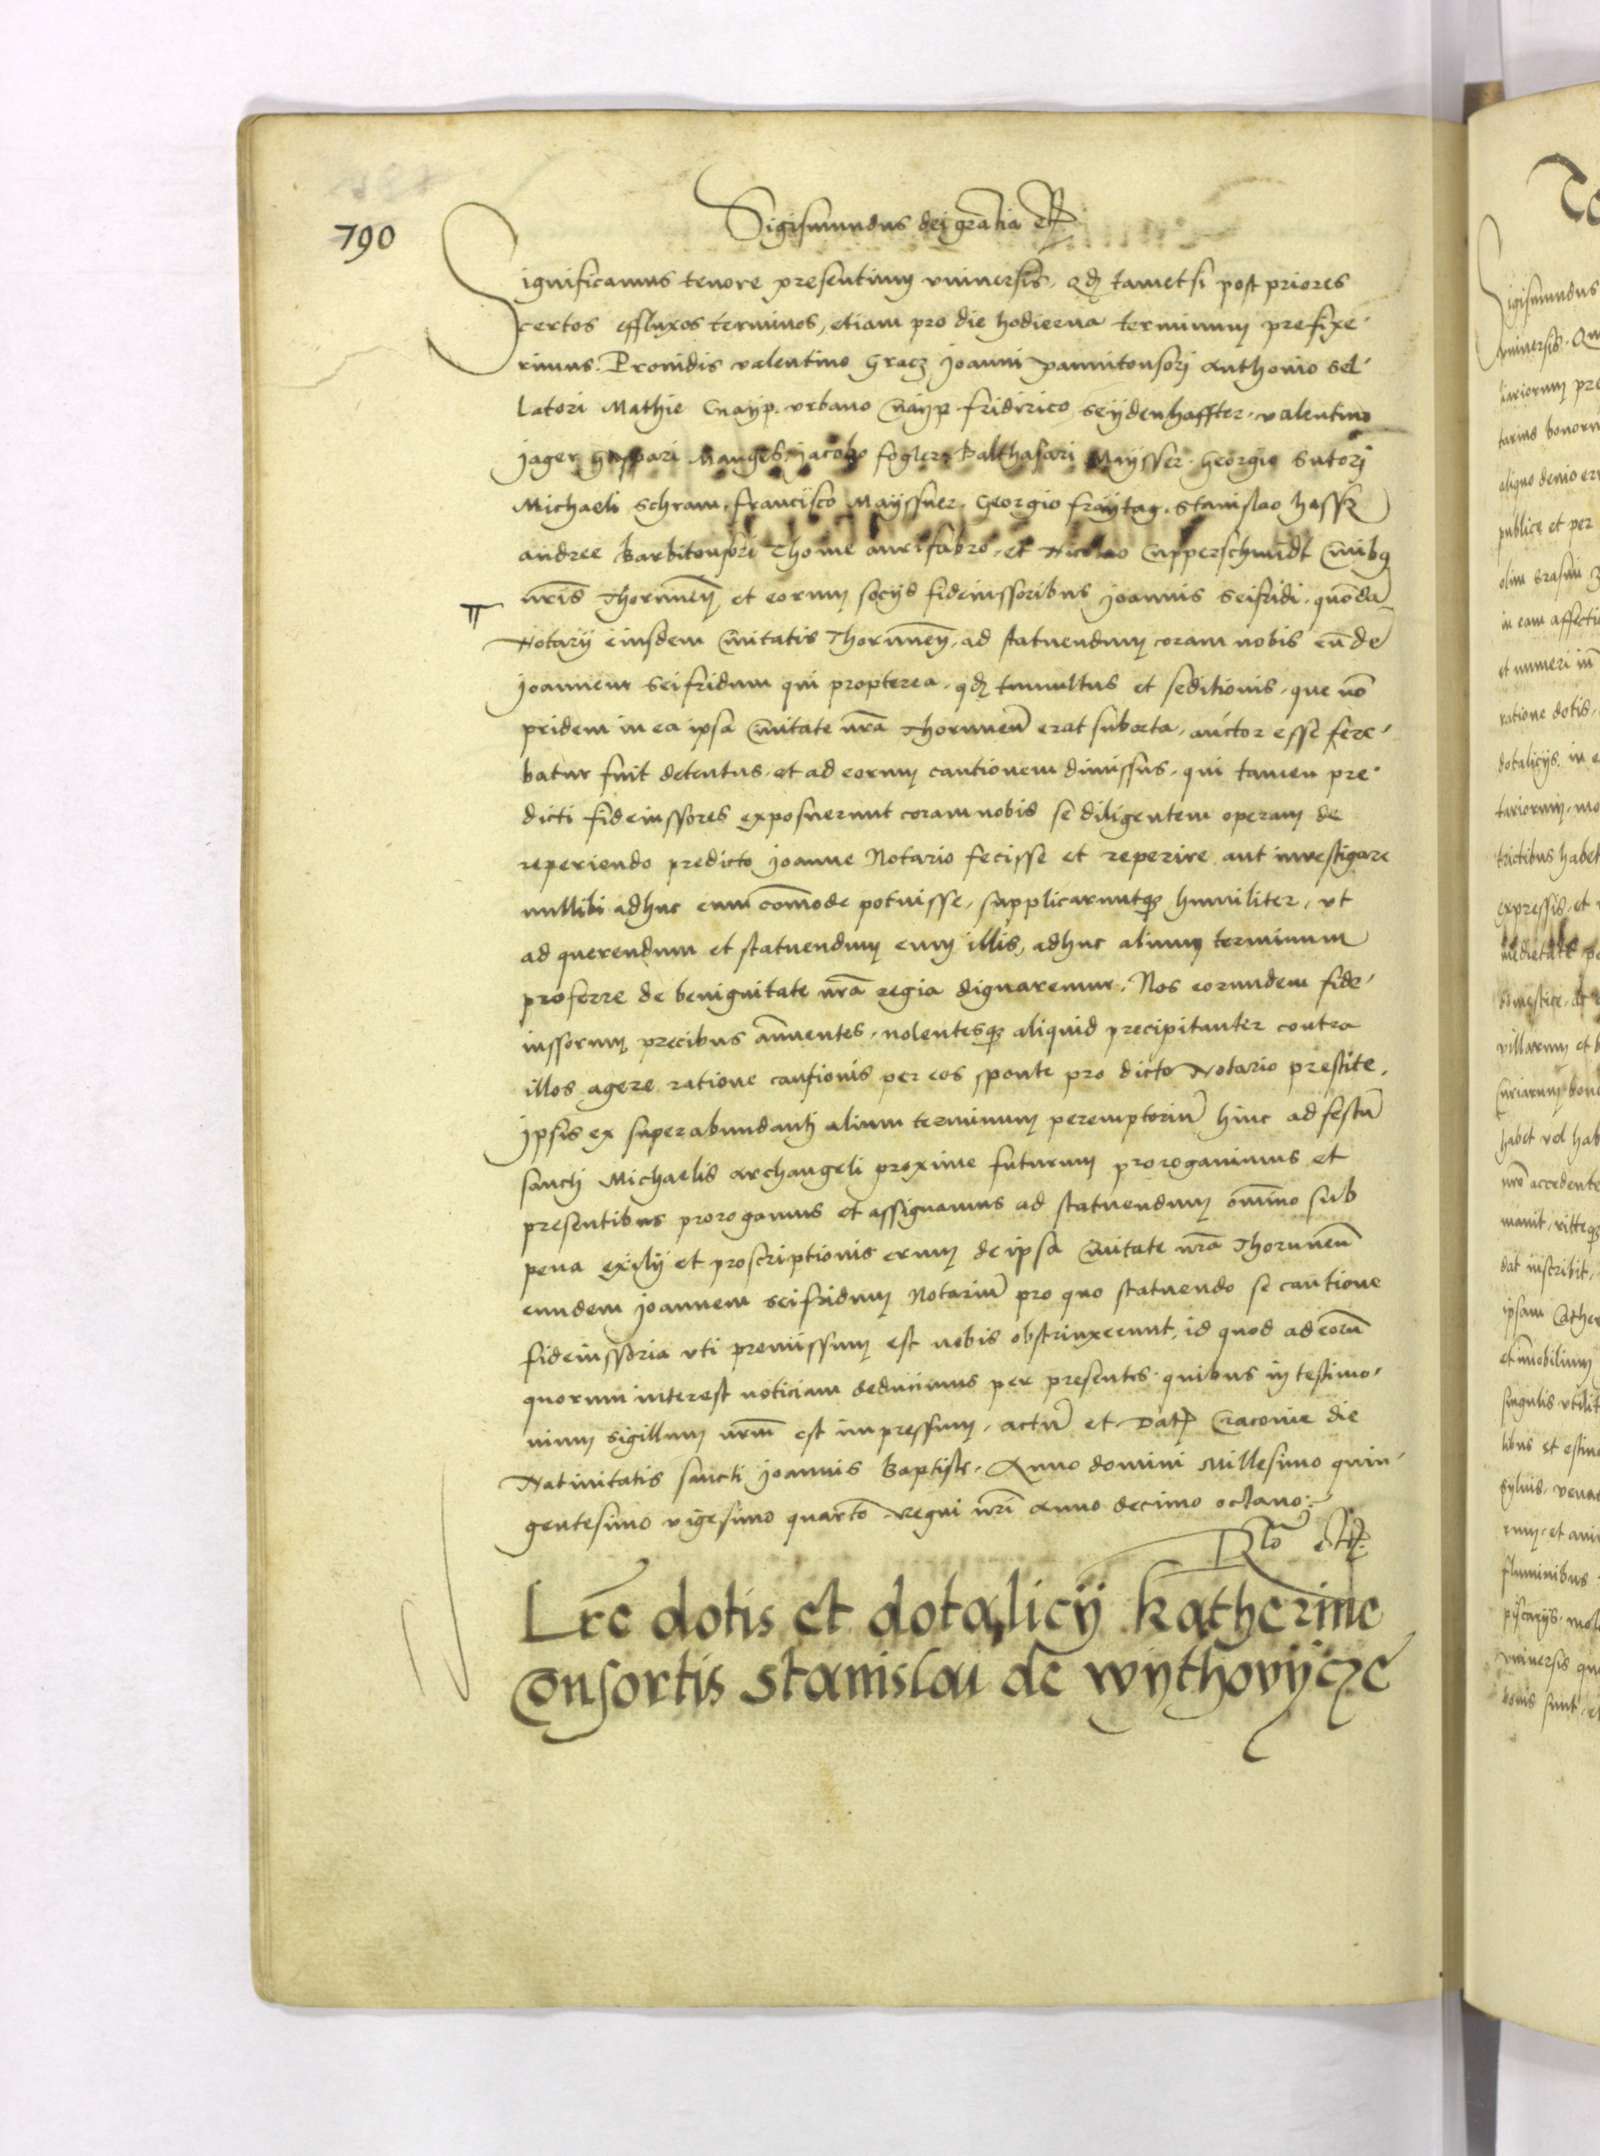 790
Sigismundus dei gratia etc
Significamus tenore presentium vniversis, qđ tametsi post priores
certos effluxos terminos, etiam pro die hodierna terminum prefixe-
rimus. Prouidis valentino Gracz Joanni pannitonsorj Anthonio sel-
latori Mathie Cnayp. vrbano Cnayp fridrico seydenhaffter. valentino
Jager Gaspari Manges. Jacobo foglers Balthasari Maysser. Georgio sutorj
Michaeli schram. francisco Mayssner. Georgio fraytag. Stanislao
andree Barbitonsori Thome aurifabro, et Nicolao Cupperschmidt Ciuibq
nrīs Thorunen et eorum socijs fideiussoribus Joannis seifridi. quōdā
Notarij eiusdem Ciuitatis Thorunen, ad statuendum coram nobis eūde
Joannem seifridum qui propterea, qđ tumultus et seditionis, que nō
pridem in ea ipsa Ciuitate nrā Thorunēn erat suborta, auctor esse fere-
batur fuit detentus, et ad eorum cautionem dimissus, qui tamen pre-
dicti fideiussores exposuerunt coram nobis se diligentem operam de
reperiendo predicto Joanne Notario fecisse et reperire aut inuestigare
nullibi adhuc eum cōmode potuisse, supplicaruntqz humiliter, vt
ad querendum et statuendum eum illis, adhuc alium terminum
proferre de benignitate nrā regia dignaremur. Nos eorundem fide-
iussorum precibus añuentes, nolentesqz aliquid precipitanter contra
illos agere ratione cautionis per eos sponte pro dicto Notario prestite.
Ipsis ex superabundantj alium terminum peremptoriū hinc ad festū
sanctj Michaelis Archangeli proxime futurum prorogauimus et
presentibus prorogamus et assignamus ad statuendum omīno sub
pena exilij et proscriptionis eorum de ipsa Ciuitate nrā Thorunēn
eundem Joannem seifridum Notariū pro quo statuendo se cautione
fideiussoria vti premissum est nobis obstrinxerunt, id quod ad eorū
quorum interest noticiam deducimus per presentes. quibus in testimo-
nium sigillum nrm̄ est impressum. actū et Dat Cracovie die
Natiuitatis sancti Joannis Baptiste. Anno domini Millesimo quin-
gentesimo vigesimo quarto Regni nrī Anno decimo octauo.
Rlō etc
Lrē dotis et dotalicij katherine
Consortis stanislai de wythovijcze